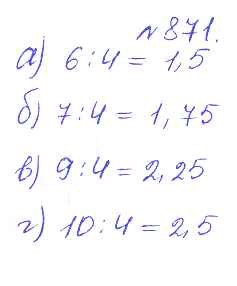 №871.
а) 6:4 = 1,5
б) 7:4 = 1,75
в) 9:4 = 2,25
г) 10:4 = 2,5